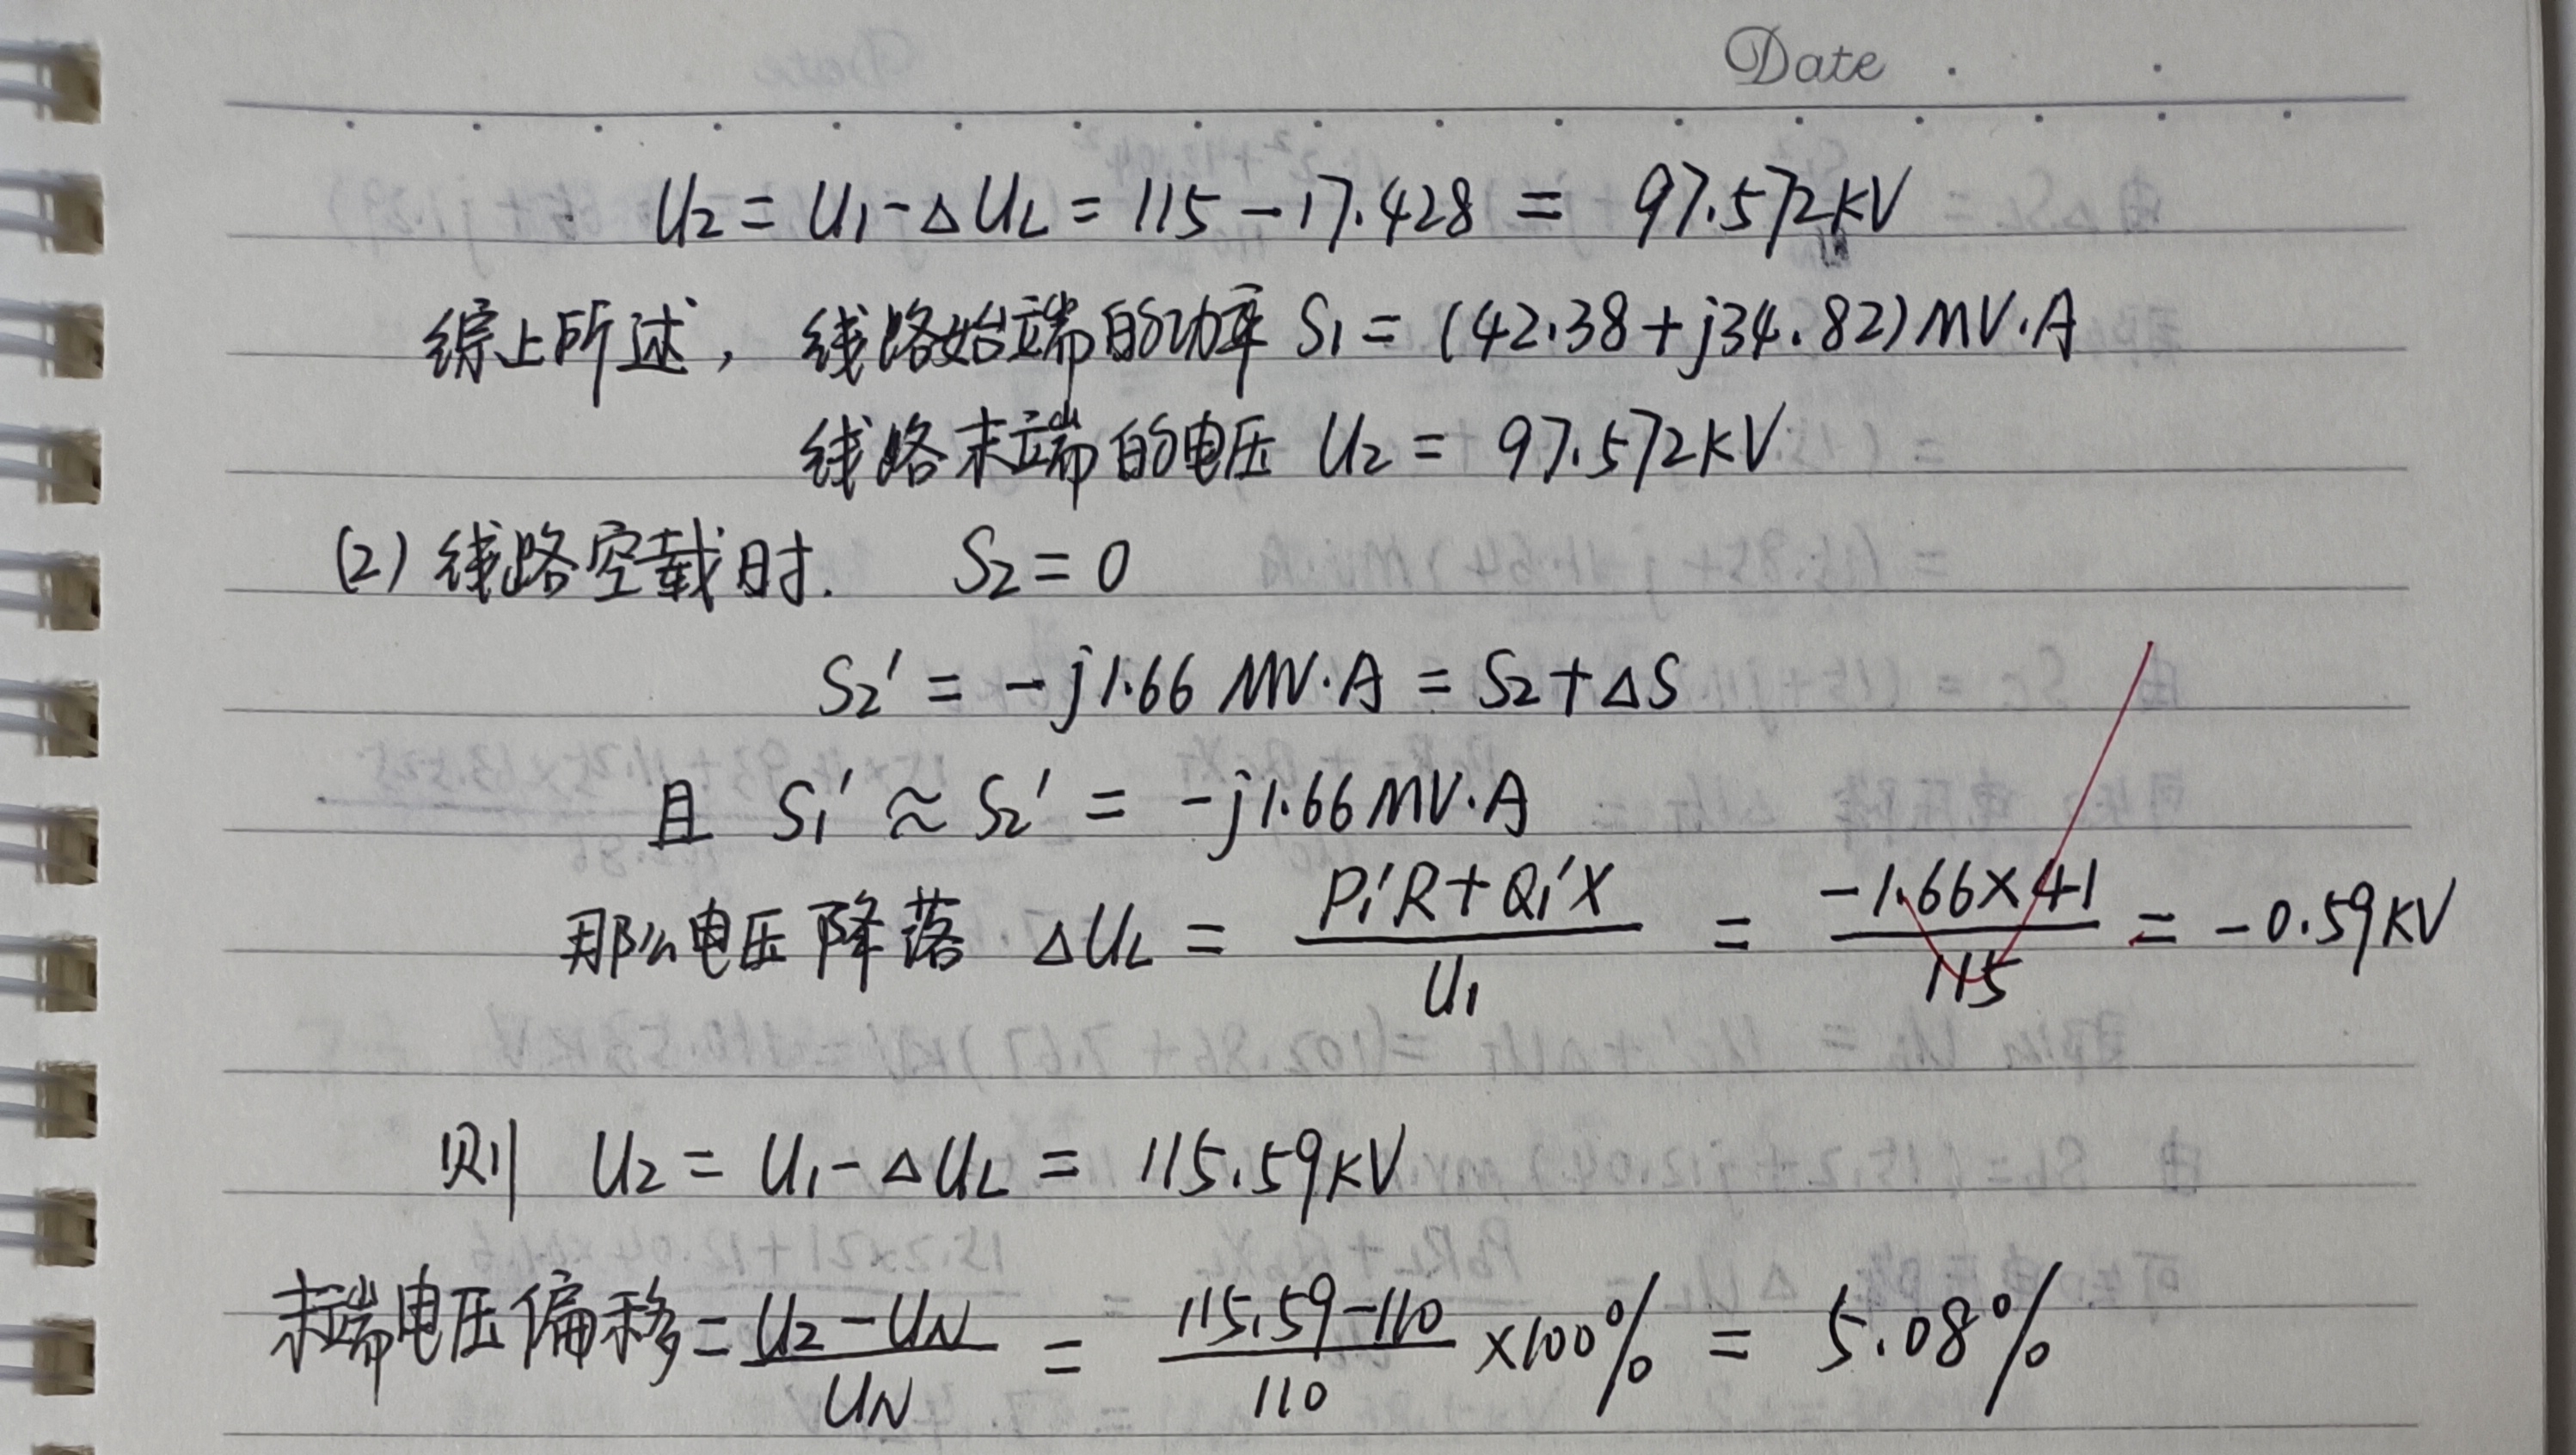 Date
U₂ = U₁ - △U_L = 115 - 17.428 = 97.572KV
综上所述, 线路始端的功率 S₁ = (42.38 + j34.82) MV·A
线路末端的电压 U₂ = 97.572KV
(2) 线路空载时. S₂ = 0
S₂' = -j1.66 MV·A = S₂ + △S
且 S₁' ≈ S₂' = -j1.66MV·A
那么电压降落 △U_L = (P₁'R + Q₁'X)/U₁ = (-1.66×41)/115 = -0.59KV
则 U₂ = U₁ - △U_L = 115.59KV
末端电压偏移 = (U₂ - U_N)/U_N = (115.59-110)/110 ×100% = 5.08%